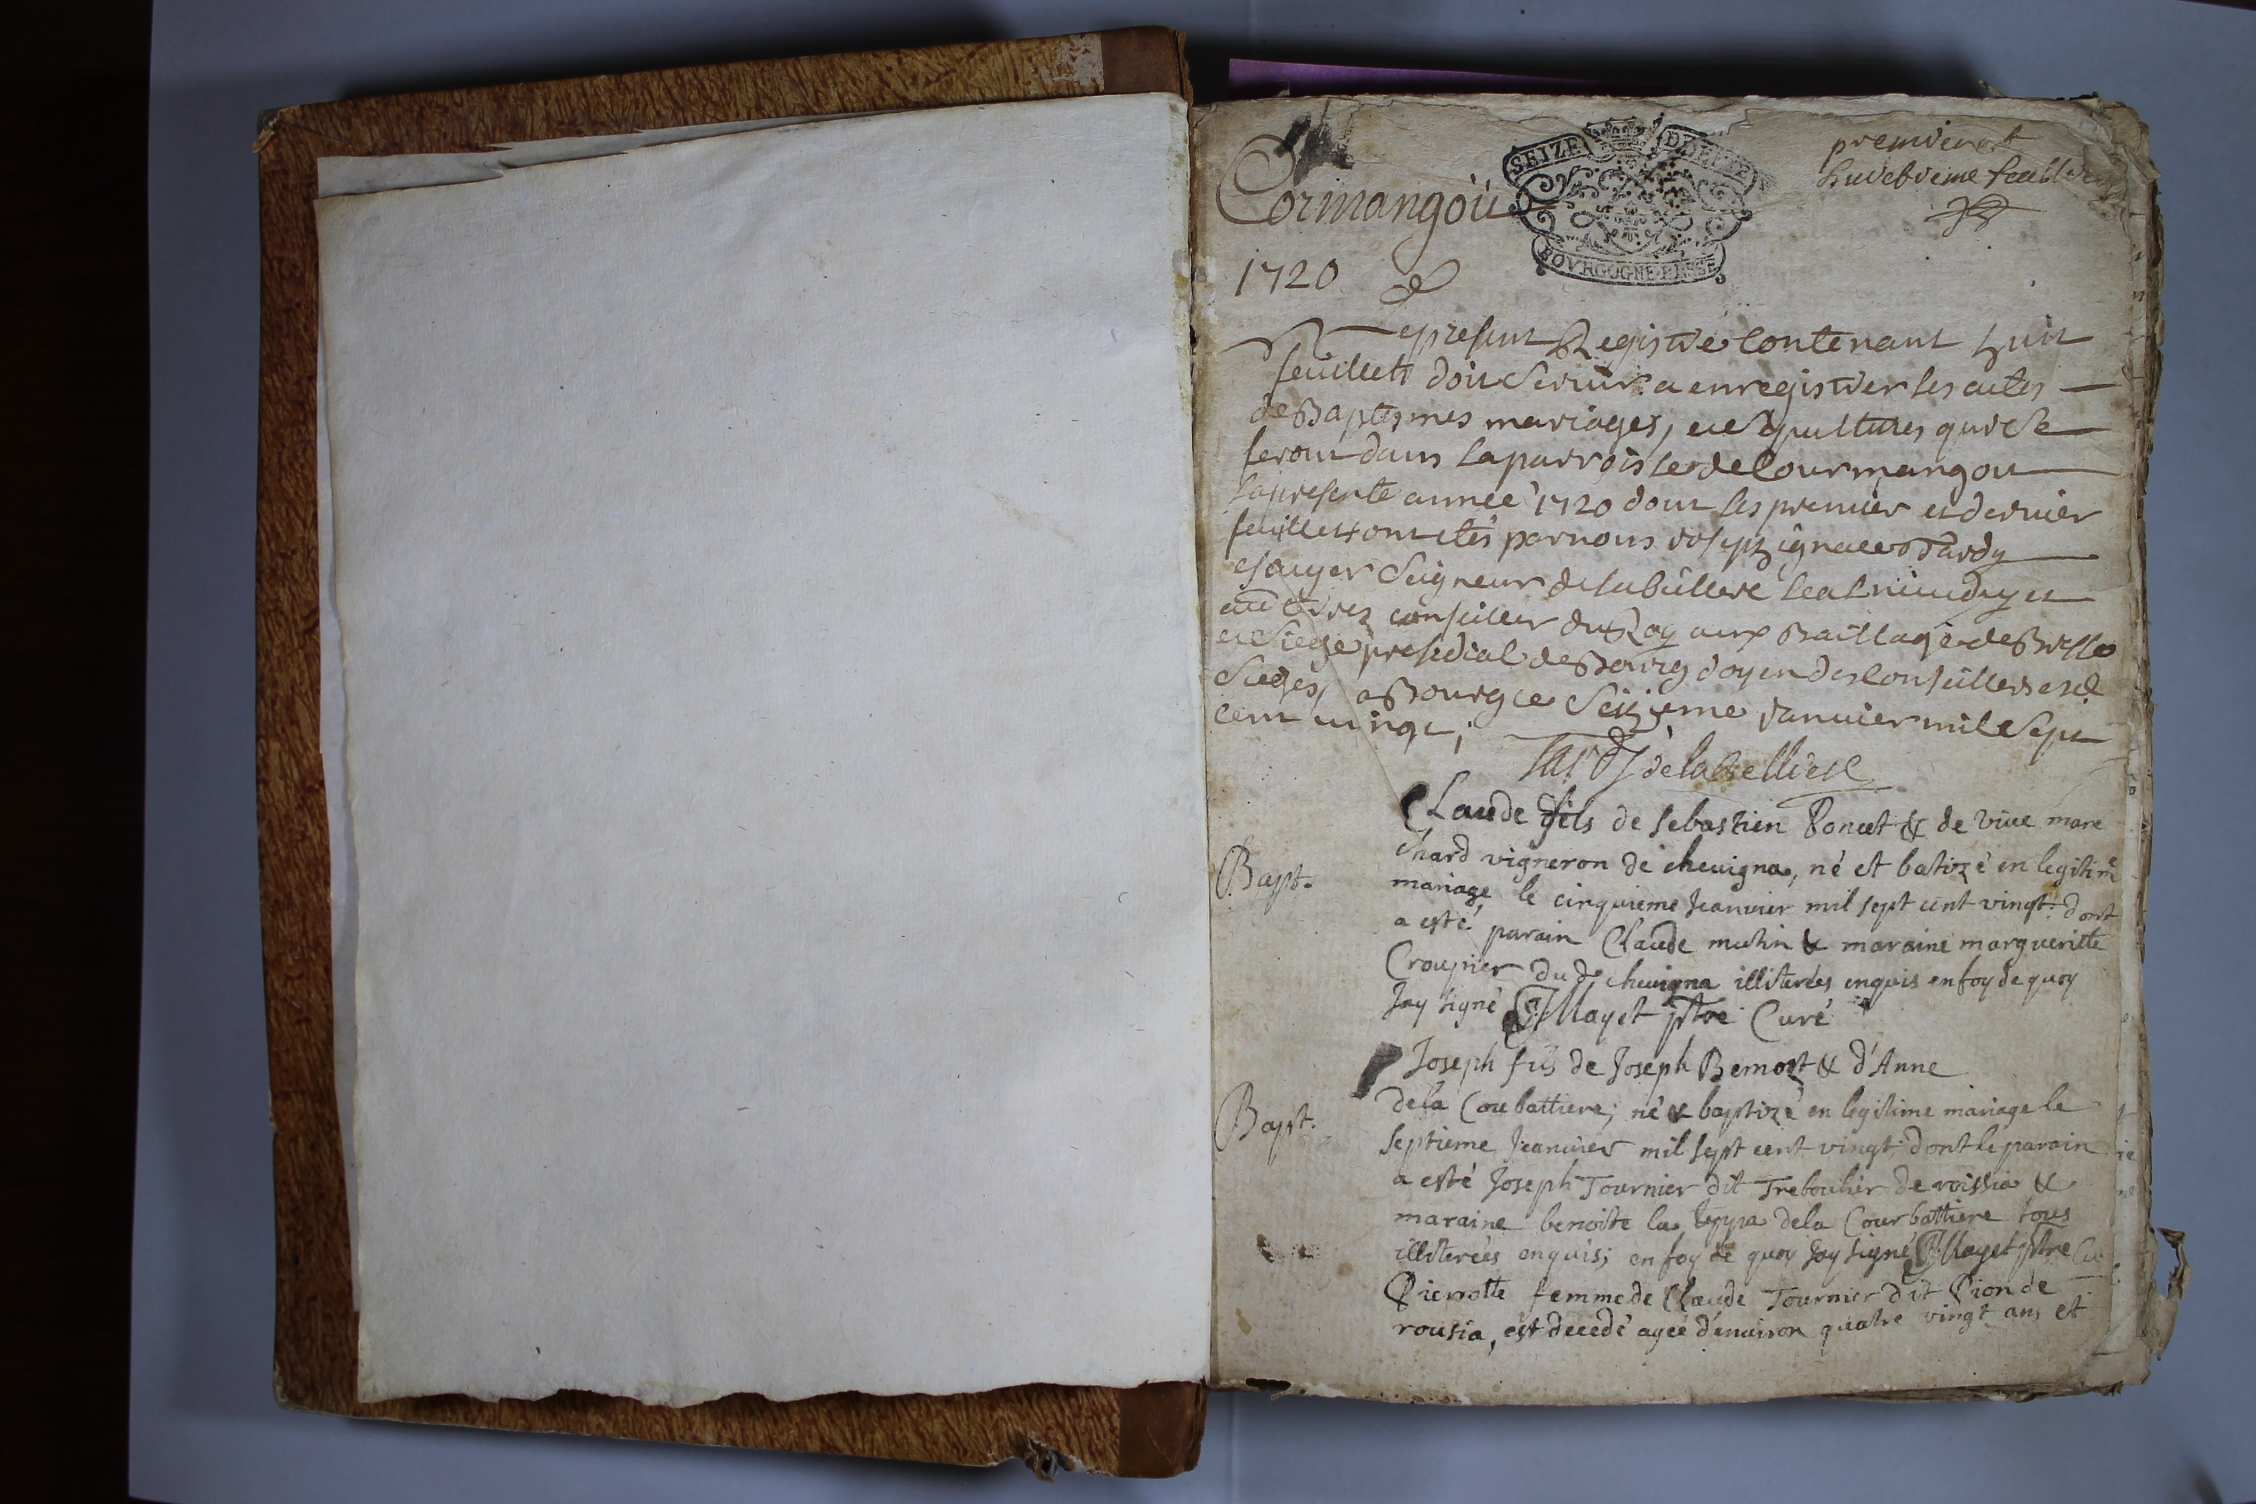 premier et
huictieme feuillet
SEIZE DENIERS
BOVRGOGNE BRESSE
Cormangoù
1720
Le present Registre Contenant huit
feuillets doit servir a enregistrer les actes
de Baptesmes mariages, et Sepultures qui se
feront dans la parroisse de Courmangou
la presente année 1720 dont les premier et dernier
feuillet ont etés par nous Joseph ignace Tardy
escuyer Seigneur de la
conseiller du Roy aux Baillage de Bresse
et Siege presidial de Bourg doyen des Conseillers
Sieges, a Bourg ce Seizieme Janvier mil Sept
cent vingt;
Tardy de la
Bapt.
Claude fils de sebastien Poncet & de vive mare
chard vigneron de cheuigna, né et batizé en legitime
mariage le cinquieme Jeanvier mil sept cent vingt. dont
a esté parain Claude mutin & maraine margueritte
Croupier du d. cheuigna illiterées enquis en foy de quoy
Jay signé Mayet ptre Curé
Bapt.
Joseph fils de Joseph & d'Anne
dela Coubattiere; né & baptizé en legitime mariage le
septieme Jeanvier mil sept cent vingt dont le parain
a esté Joseph Tournier dit Treboulier de roissia &
maraine benoite la dela Courbattiere tous
illiterées enquis; en foy de quoy Jay signé Mayet ptre Cu
Pierrotte femme de Claude Tournier dit Pion de
rousia, est decedé ageé d'enuiron quatre vingt ans et